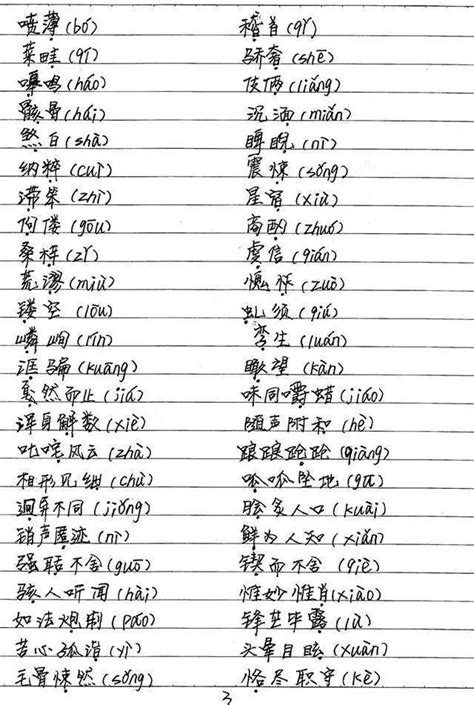 喷薄(bó) 稽首(qǐ)
菜畦(qí) 骄奢(shē)
嗥鸣(háo) 伎俩(liǎng)
骸骨(hái) 沉湎(miǎn)
煞白(shà) 睥睨(nì)
纳粹(cuì) 震悚(sǒng)
滞笨(zhì) 星宿(xiù)
佝偻(gōu) 商酌(zhuó)
桑梓(zǐ) 虔信(qián)
荒谬(miù) 愧怍(zuò)
镂空(lòu) 虬须(qiú)
嶙峋(lín) 孪生(luán)
诓骗(kuāng) 瞰望(kàn)
戛然而止(jiá) 味同嚼蜡(jiáo)
浑身解数(xiè) 随声附和(hè)
叱咤风云(zhà) 踉踉跄跄(qiàng)
相形见绌(chù) 呱呱坠地(gū)
迥异不同(jiǒng) 脍炙人口(kuài)
销声匿迹(nì) 鲜为人知(xiǎn)
强聒不舍(guō) 锲而不舍(qiè)
骇人听闻(hài) 惟妙惟肖(xiào)
如法炮制(páo) 锋芒毕露(lù)
苦心孤诣(yì) 头晕目眩(xuàn)
毛骨悚然(sǒng) 恪尽职守(kè)
3